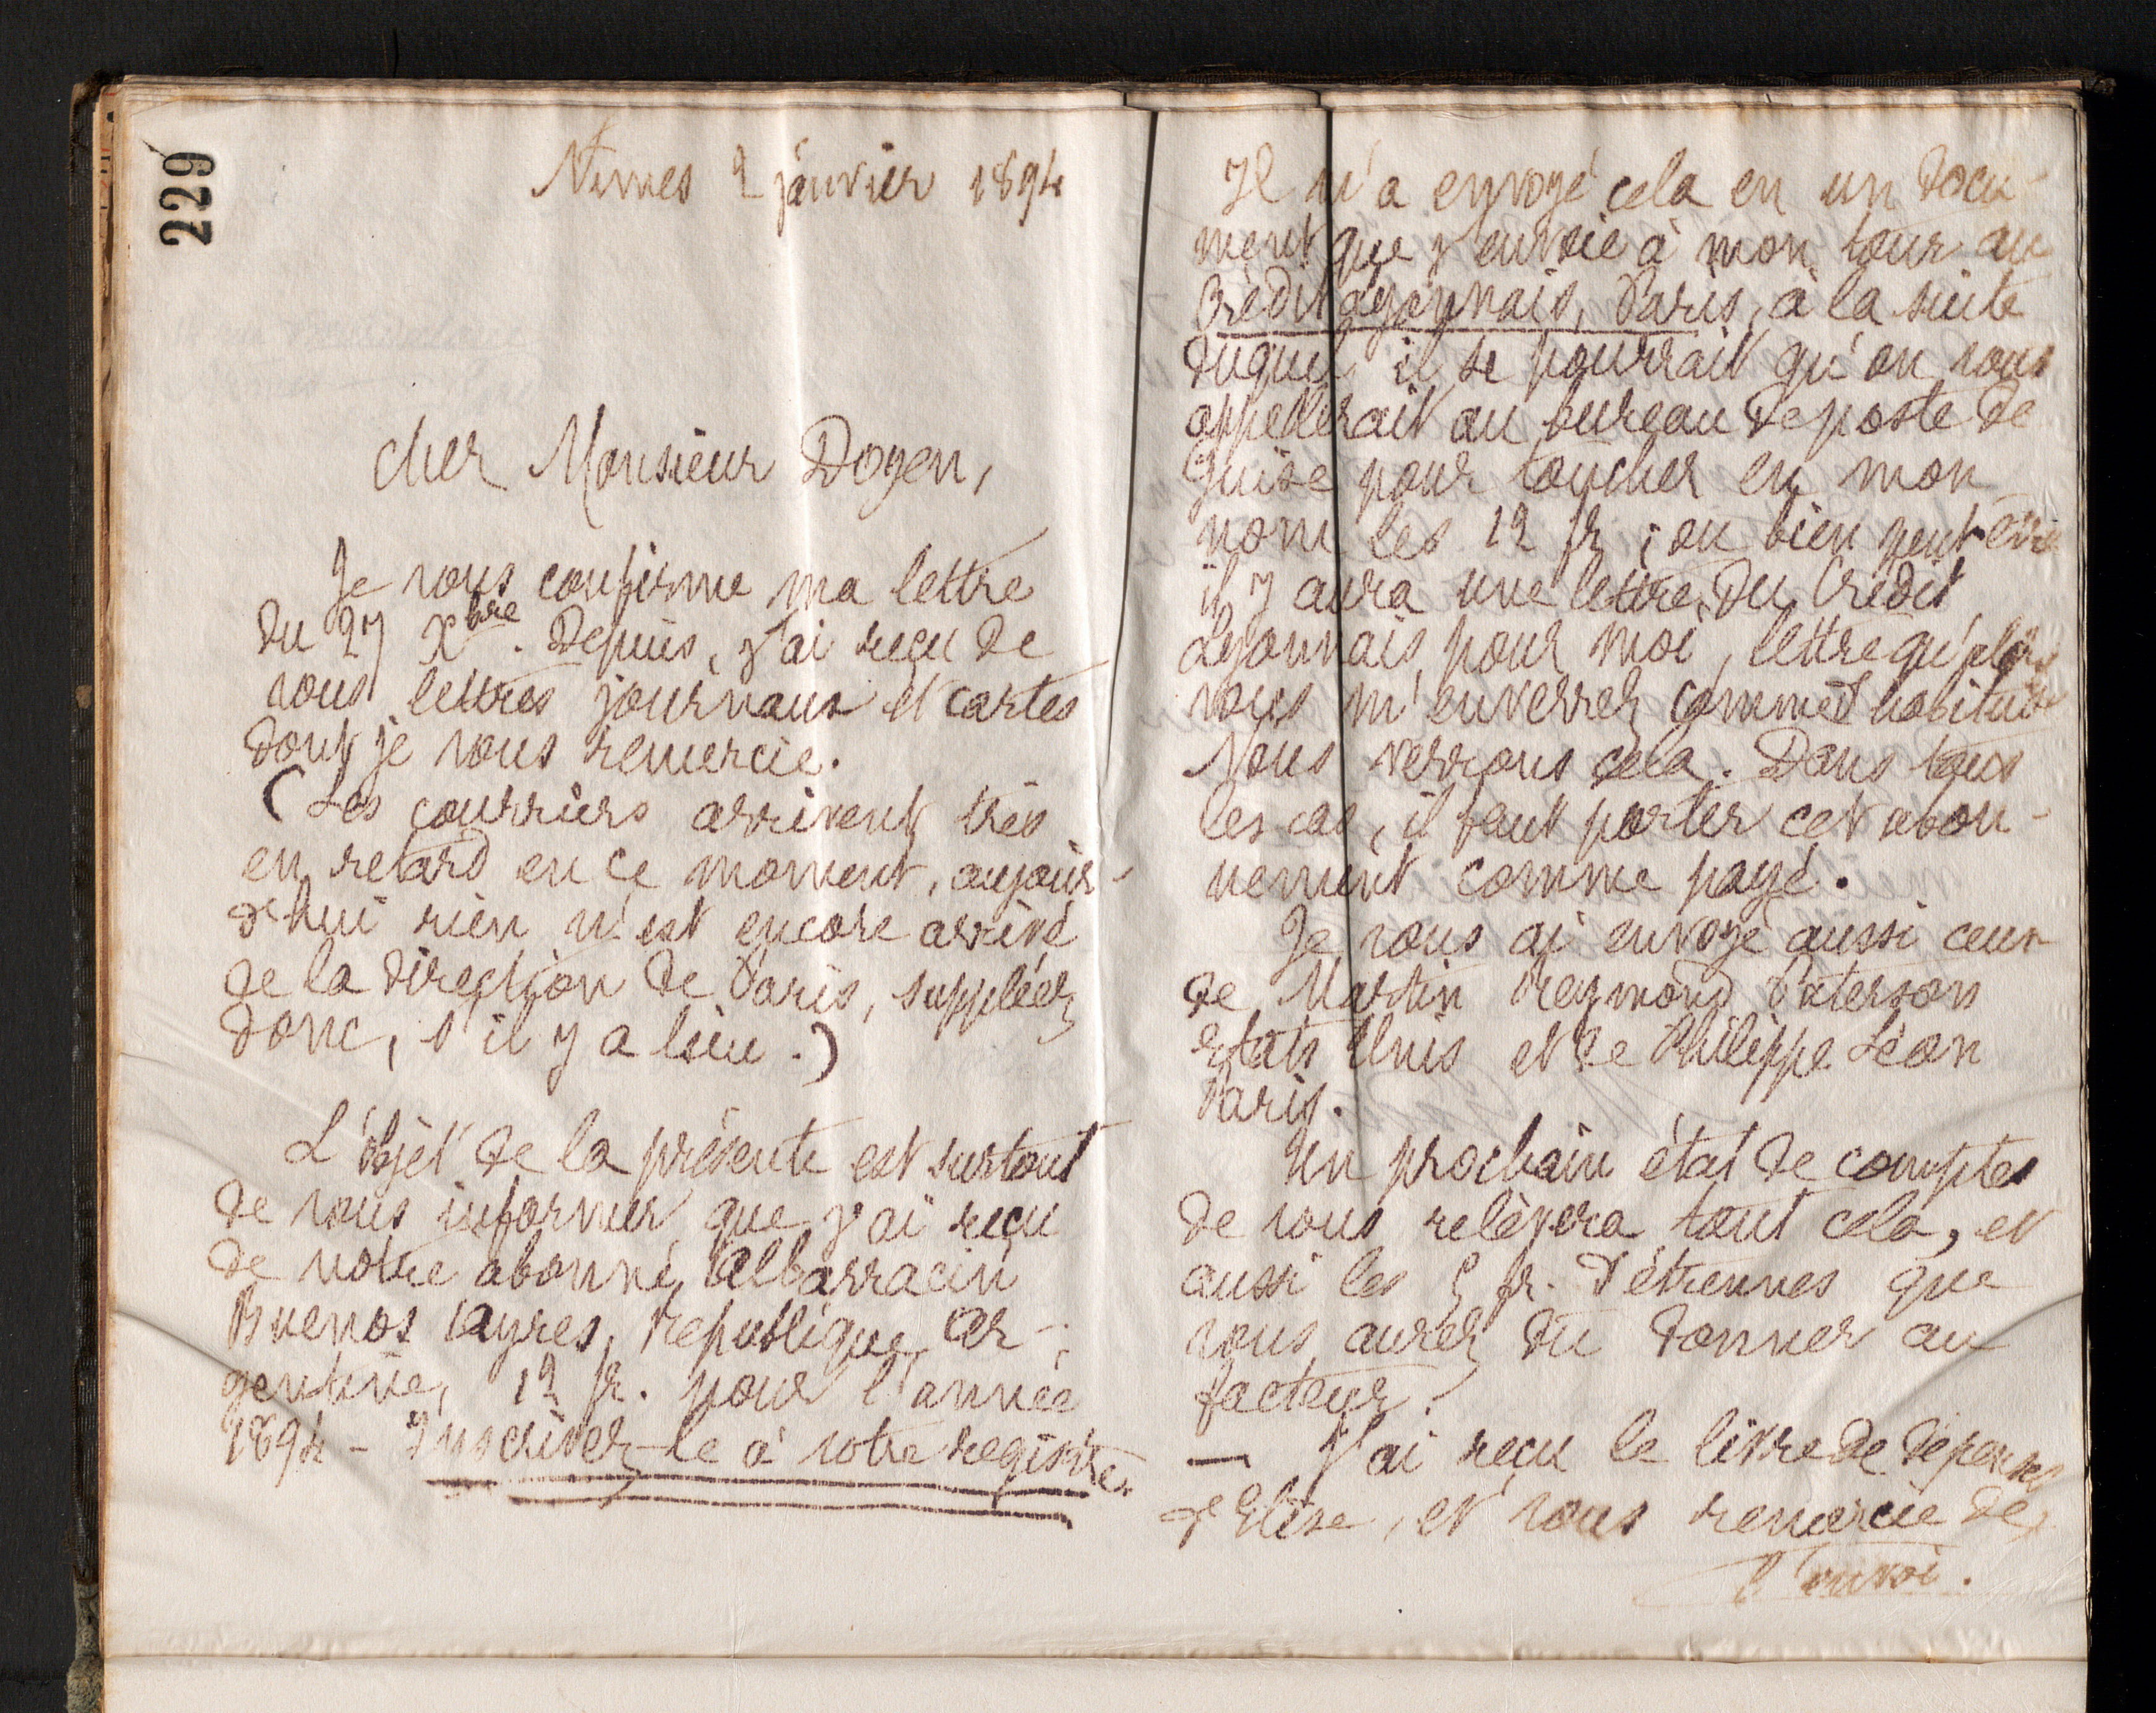 229
Nimes 2 janvier 1894
cher Monsieur Doyen,
Je vous confirme ma lettre
du 27 Xbre. Depuis, j'ai reçu de
vous lettres journaux et cartes
dont je vous remercie.
(Les courriers arrivent très
en retard en ce moment, aujour-
d'hui rien n'est encore arrivé
de la direction de Paris, suppléez
donc, s'il y a lieu.)
L'objet de la présente est surtout
de vous informer que j'ai reçu
de notre abonné Albarracin
Buenos Ayres, République Ar-
gentine, 12 fr. pour l'année
1894 - Inscrivez-le à votre registre.
Il m'a envoyé cela en un docu-
ment que j'envoie à mon tour au
Crédit Lyonnais, Paris, à la suite
duquel il se pourrait qu'on vous
appellerait au bureau de poste de
Guise pour toucher en mon
nom les 12 fr ; ou bien peut-être
il y aura une lettre du Crédit
Lyonnais pour moi, lettre qu'alors
vous m'enverrez comme d'habitude
Nous verrons cela. Dans tous
les cas, il faut porter cet abon-
nement comme payé.
Je vous ai envoyé aussi ceux
de Martin Reymond Paterson
Etats Unis et de Philippe Léon
Paris.
Un prochain état de comptes
de vous relèvera tout cela, et
aussi les 5 fr. d'étrennes que
vous aurez dû donner au
facteur.
— J'ai reçu le livre de dépenses
d'Elise, et vous remercie de
l'envoi.